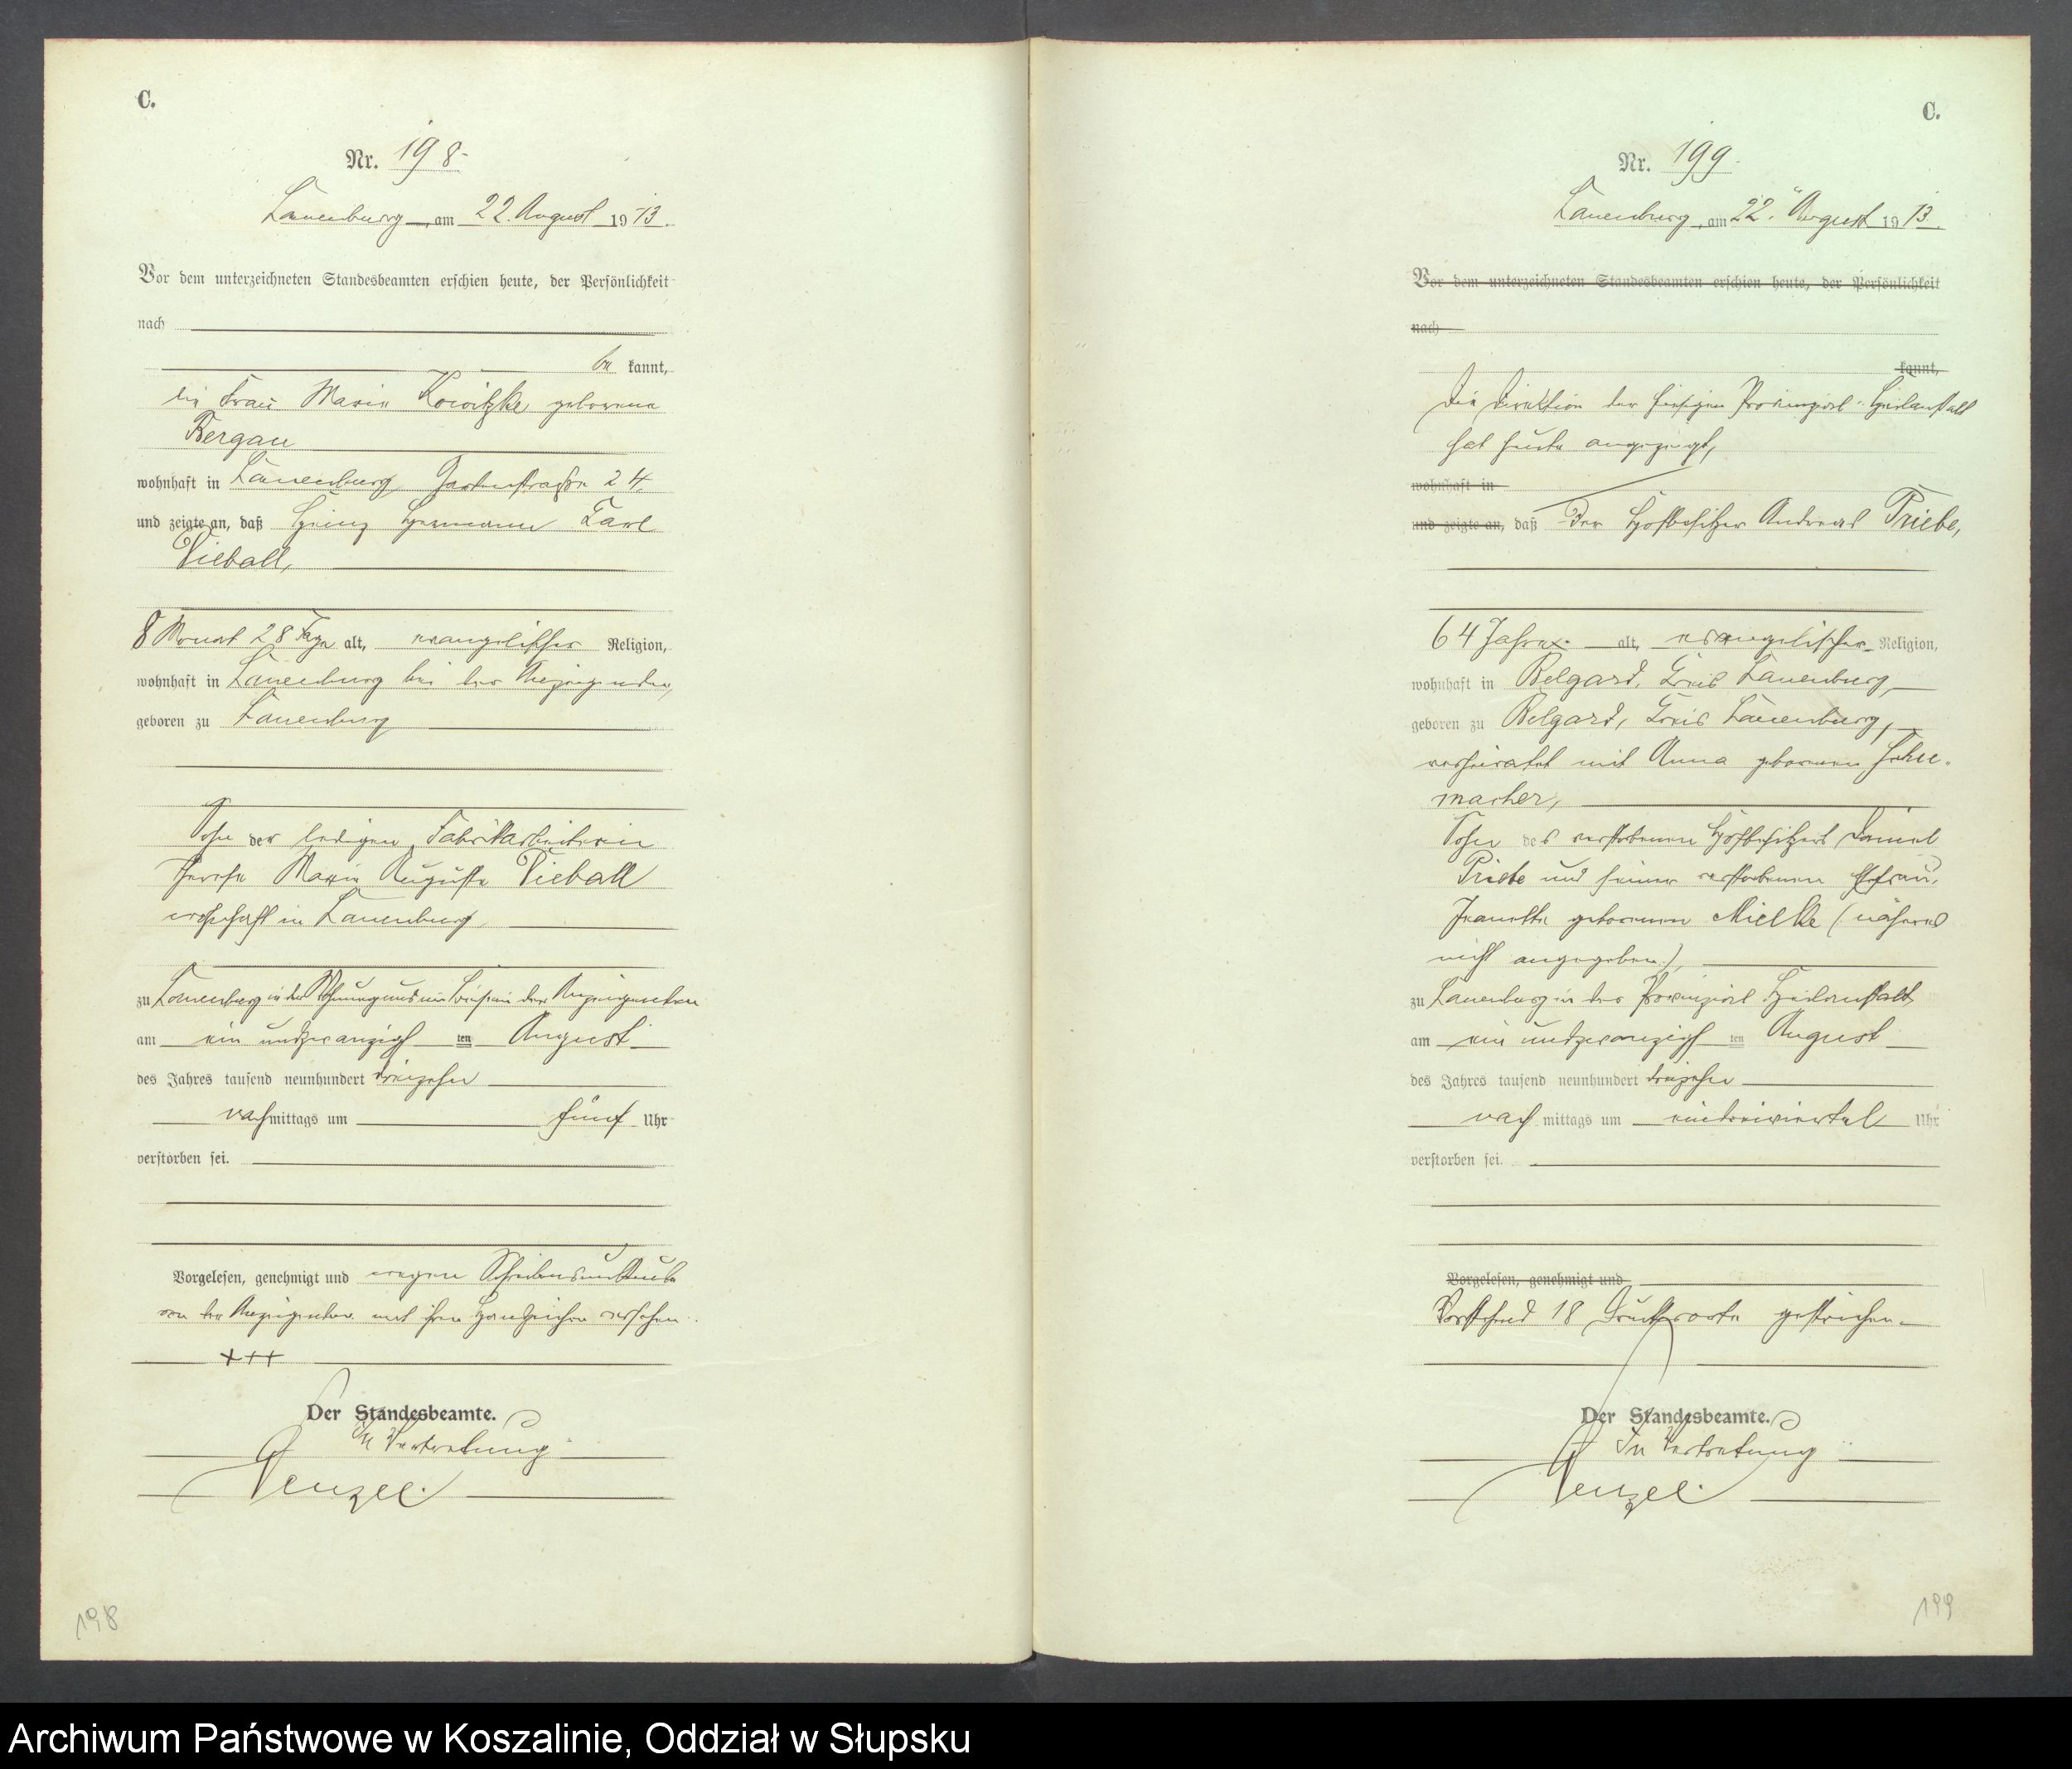 C.
Nr. 198.
Lauenburg, am 22. August 1913.
Vor dem unterzeichneten Standesbeamten erschien heute, der Persönlichkeit
nach
be kannt,
die Frau Marie Kowitzke geborene
Bergau
wohnhaft in Lauenburg Gartenstraße 24
und zeigte an, daß Heinz Hermann Karl
Vieball,
8 Monat 28 Tage alt, evangelischer Religion,
wohnhaft in Lauenburg bei der Anzeigenden,
geboren zu Lauenburg
Sohn der ledigen Fabrikarbeiterin
Therese Marie Auguste Vieball
wohnhaft in Lauenburg
zu Lauenburg in der Wohnung und im Beisein der Anzeigenden
am ein undzwanzigsten August
des Jahres tausend neunhundert dreizehn
nachmittags um fünf Uhr
verstorben sei.
Vorgelesen, genehmigt und wegen Schreibensunkunde
von der Anzeigenden mit ihren Handzeichen versehen.
+++
Der Standesbeamte.
In Vertretung
Wenzel.
198
C.
Nr. 199.
Lauenburg, am 22. August 1913.
Vor dem unterzeichneten Standesbeamten erschien heute, der Persönlichkeit
nach
kannt,
Die Direktion der hiesigen Provinzial-Heilanstalt
hat heute angezeigt,
wohnhaft in
und zeigte an, daß der Hofbesitzer Andreas Priebe,
64 Jahre alt, evangelischer Religion,
wohnhaft in Belgard, Kreis Lauenburg,
geboren zu Belgard, Kreis Lauenburg,
verheiratet mit Anna geborenen Schu-
macher,
Sohn des verstorbenen Hofbesitzers Daniel
Priebe und seiner verstorbenen Ehefrau
Jeanette geborenen Mielke (näheres
nicht angegeben),
zu Lauenburg in der Provinzial Heilanstalt
am ein undzwanzigsten August
des Jahres tausend neunhundert dreizehn
nach mittags um eindreiviertel Uhr
verstorben sei.
Vorgelesen, genehmigt und
Vorstehend 18 Druckworte gestrichen.
Der Standesbeamte.
In Vertretung
Wenzel.
199
Archiwum Państwowe w Koszalinie, Oddział w Słupsku